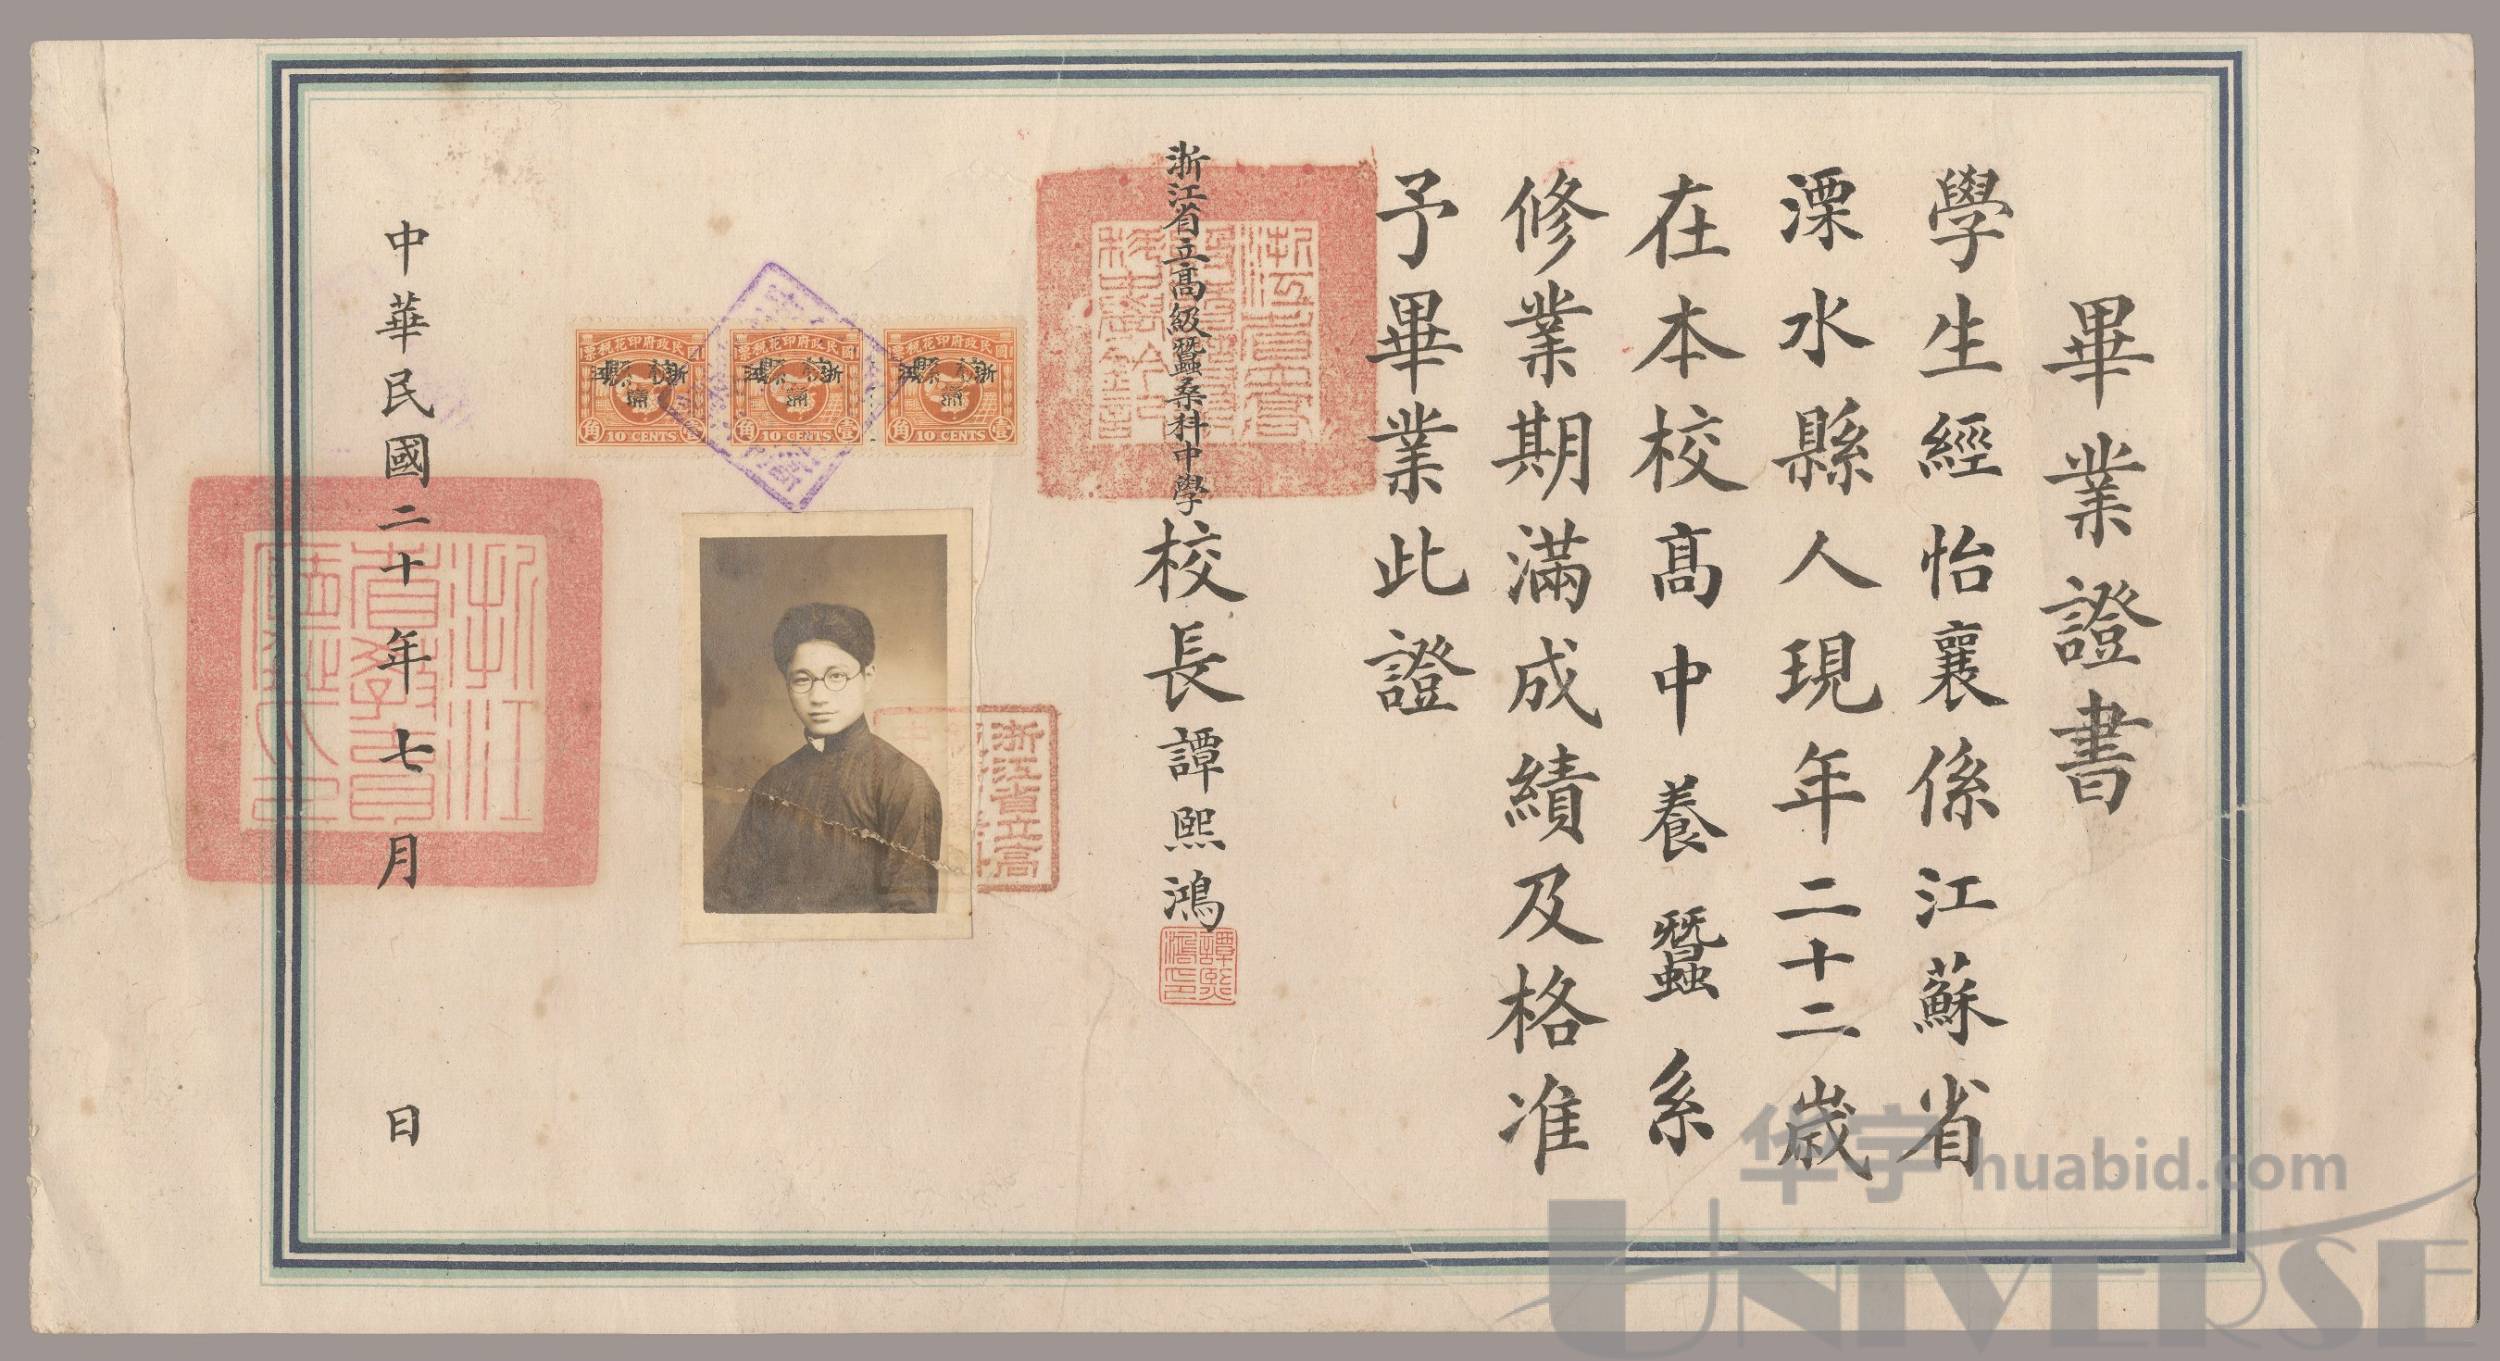 畢業證書
學生經怡襄係江蘇省
溧水縣人現年二十二歲
在本校高中養蠶系
修業期滿成績及格准
予畢業此證
浙江省立高級蠶桑科中學校長譚熙鴻
譚熙鴻印
浙江省立高
國民政府印花稅票
角 10 CENTS 壹
國民政府印花稅票
角 10 CENTS 壹
國民政府印花稅票
角 10 CENTS 壹
中華民國二十年七月 日
浙江省教育廳之印
华宇 huabid.com
UNIVERSE